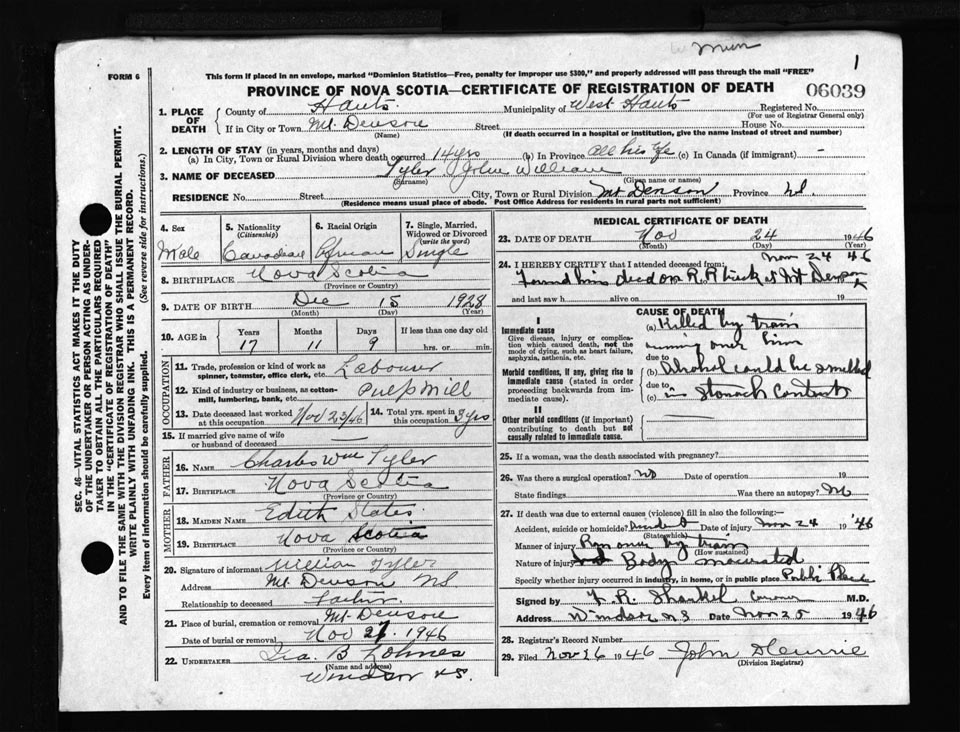 Mun
1
FORM 6
This form if placed in an envelope, marked "Dominion Statistics—Free, penalty for improper use $300," and properly addressed will pass through the mail "FREE"
PROVINCE OF NOVA SCOTIA—CERTIFICATE OF REGISTRATION OF DEATH 06039
1. PLACE OF DEATH
County of Hants Municipality of West Hants Registered No.
(For use of Registrar General only)
If in City or Town Mt. Denson Street House No.
(Name) (If death occurred in a hospital or institution, give the name instead of street and number)
2. LENGTH OF STAY (in years, months and days)
(a) In City, Town or Rural Division where death occurred 14 yrs (b) In Province All his life (c) In Canada (if immigrant) —
3. NAME OF DECEASED Tyler John William
(Surname) (Given name or names)
RESIDENCE No. Street City, Town or Rural Division Mt Denson Province N.S.
(Residence means usual place of abode. Post Office Address for residents in rural parts not sufficient)
4. Sex 5. Nationality (Citizenship) 6. Racial Origin 7. Single, Married, Widowed or Divorced (write the word)
Male Canadian African Single
8. BIRTHPLACE Nova Scotia
(Province or Country)
9. DATE OF BIRTH Dec 15 1928
(Month) (Day) (Year)
10. AGE in Years Months Days If less than one day old
17 11 9 hrs. or min.
OCCUPATION
11. Trade, profession or kind of work as spinner, teamster, office clerk, etc. Labourer
12. Kind of industry or business, as cotton-mill, lumbering, bank, etc. Pulp Mill
13. Date deceased last worked at this occupation Nov 23/46 14. Total yrs. spent in this occupation 3 yrs
15. If married give name of wife or husband of deceased —
FATHER
16. NAME Charles Wm Tyler
17. BIRTHPLACE Nova Scotia
(Province or Country)
MOTHER
18. MAIDEN NAME Edith States
19. BIRTHPLACE Nova Scotia
(Province or Country)
20. Signature of informant William Tyler
Address Mt. Denson NS
Relationship to deceased Father
21. Place of burial, cremation or removal Mt. Denson
Date of burial or removal Nov 1946
22. UNDERTAKER Ira. B
(Name and address)
Windsor N.S.
MEDICAL CERTIFICATE OF DEATH
23. DATE OF DEATH Nov 24 1946
(Month) (Day) (Year)
24. I HEREBY CERTIFY that I attended deceased from: Nov 24 46
Found him dead on R.R. track at Mt Denson
and last saw h alive on 19
CAUSE OF DEATH
I
Immediate cause
Give disease, injury or complication which caused death, not the mode of dying, such as heart failure, asphyxia, asthenia, etc.
(a) Killed by train
running over him
due to
Morbid conditions, if any, giving rise to immediate cause (stated in order proceeding backwards from immediate cause).
(b) Alcohol could be smelled
due to
(c) in stomach content
II
Other morbid conditions (if important) contributing to death but not causally related to immediate cause.
25. If a woman, was the death associated with pregnancy?
26. Was there a surgical operation? no Date of operation 19
State findings Was there an autopsy? no
27. If death was due to external causes (violence) fill in also the following:—
Accident, suicide or homicide? Accident Date of injury Nov 24 1946
(State which)
Manner of injury Ran over by train
(How sustained)
Nature of injury Body macerated
Specify whether injury occurred in industry, in home, or in public place Public Place
Signed by F. R. Shankel Coroner M.D.
Address Windsor N.S Date Nov 25 1946
28. Registrar's Record Number
29. Filed Nov 26 1946 John
(Division Registrar)
SEC. 46—VITAL STATISTICS ACT MAKES IT THE DUTY
OF THE UNDERTAKER OR PERSON ACTING AS UNDERTAKER
TO OBTAIN ALL THE PARTICULARS REQUIRED
IN THE "CERTIFICATE OF REGISTRATION OF DEATH"
AND TO FILE THE SAME WITH THE DIVISION REGISTRAR WHO SHALL ISSUE THE BURIAL PERMIT.
WRITE PLAINLY WITH UNFADING INK. THIS IS A PERMANENT RECORD.
Every item of information should be carefully supplied. (See reverse side for instructions.)